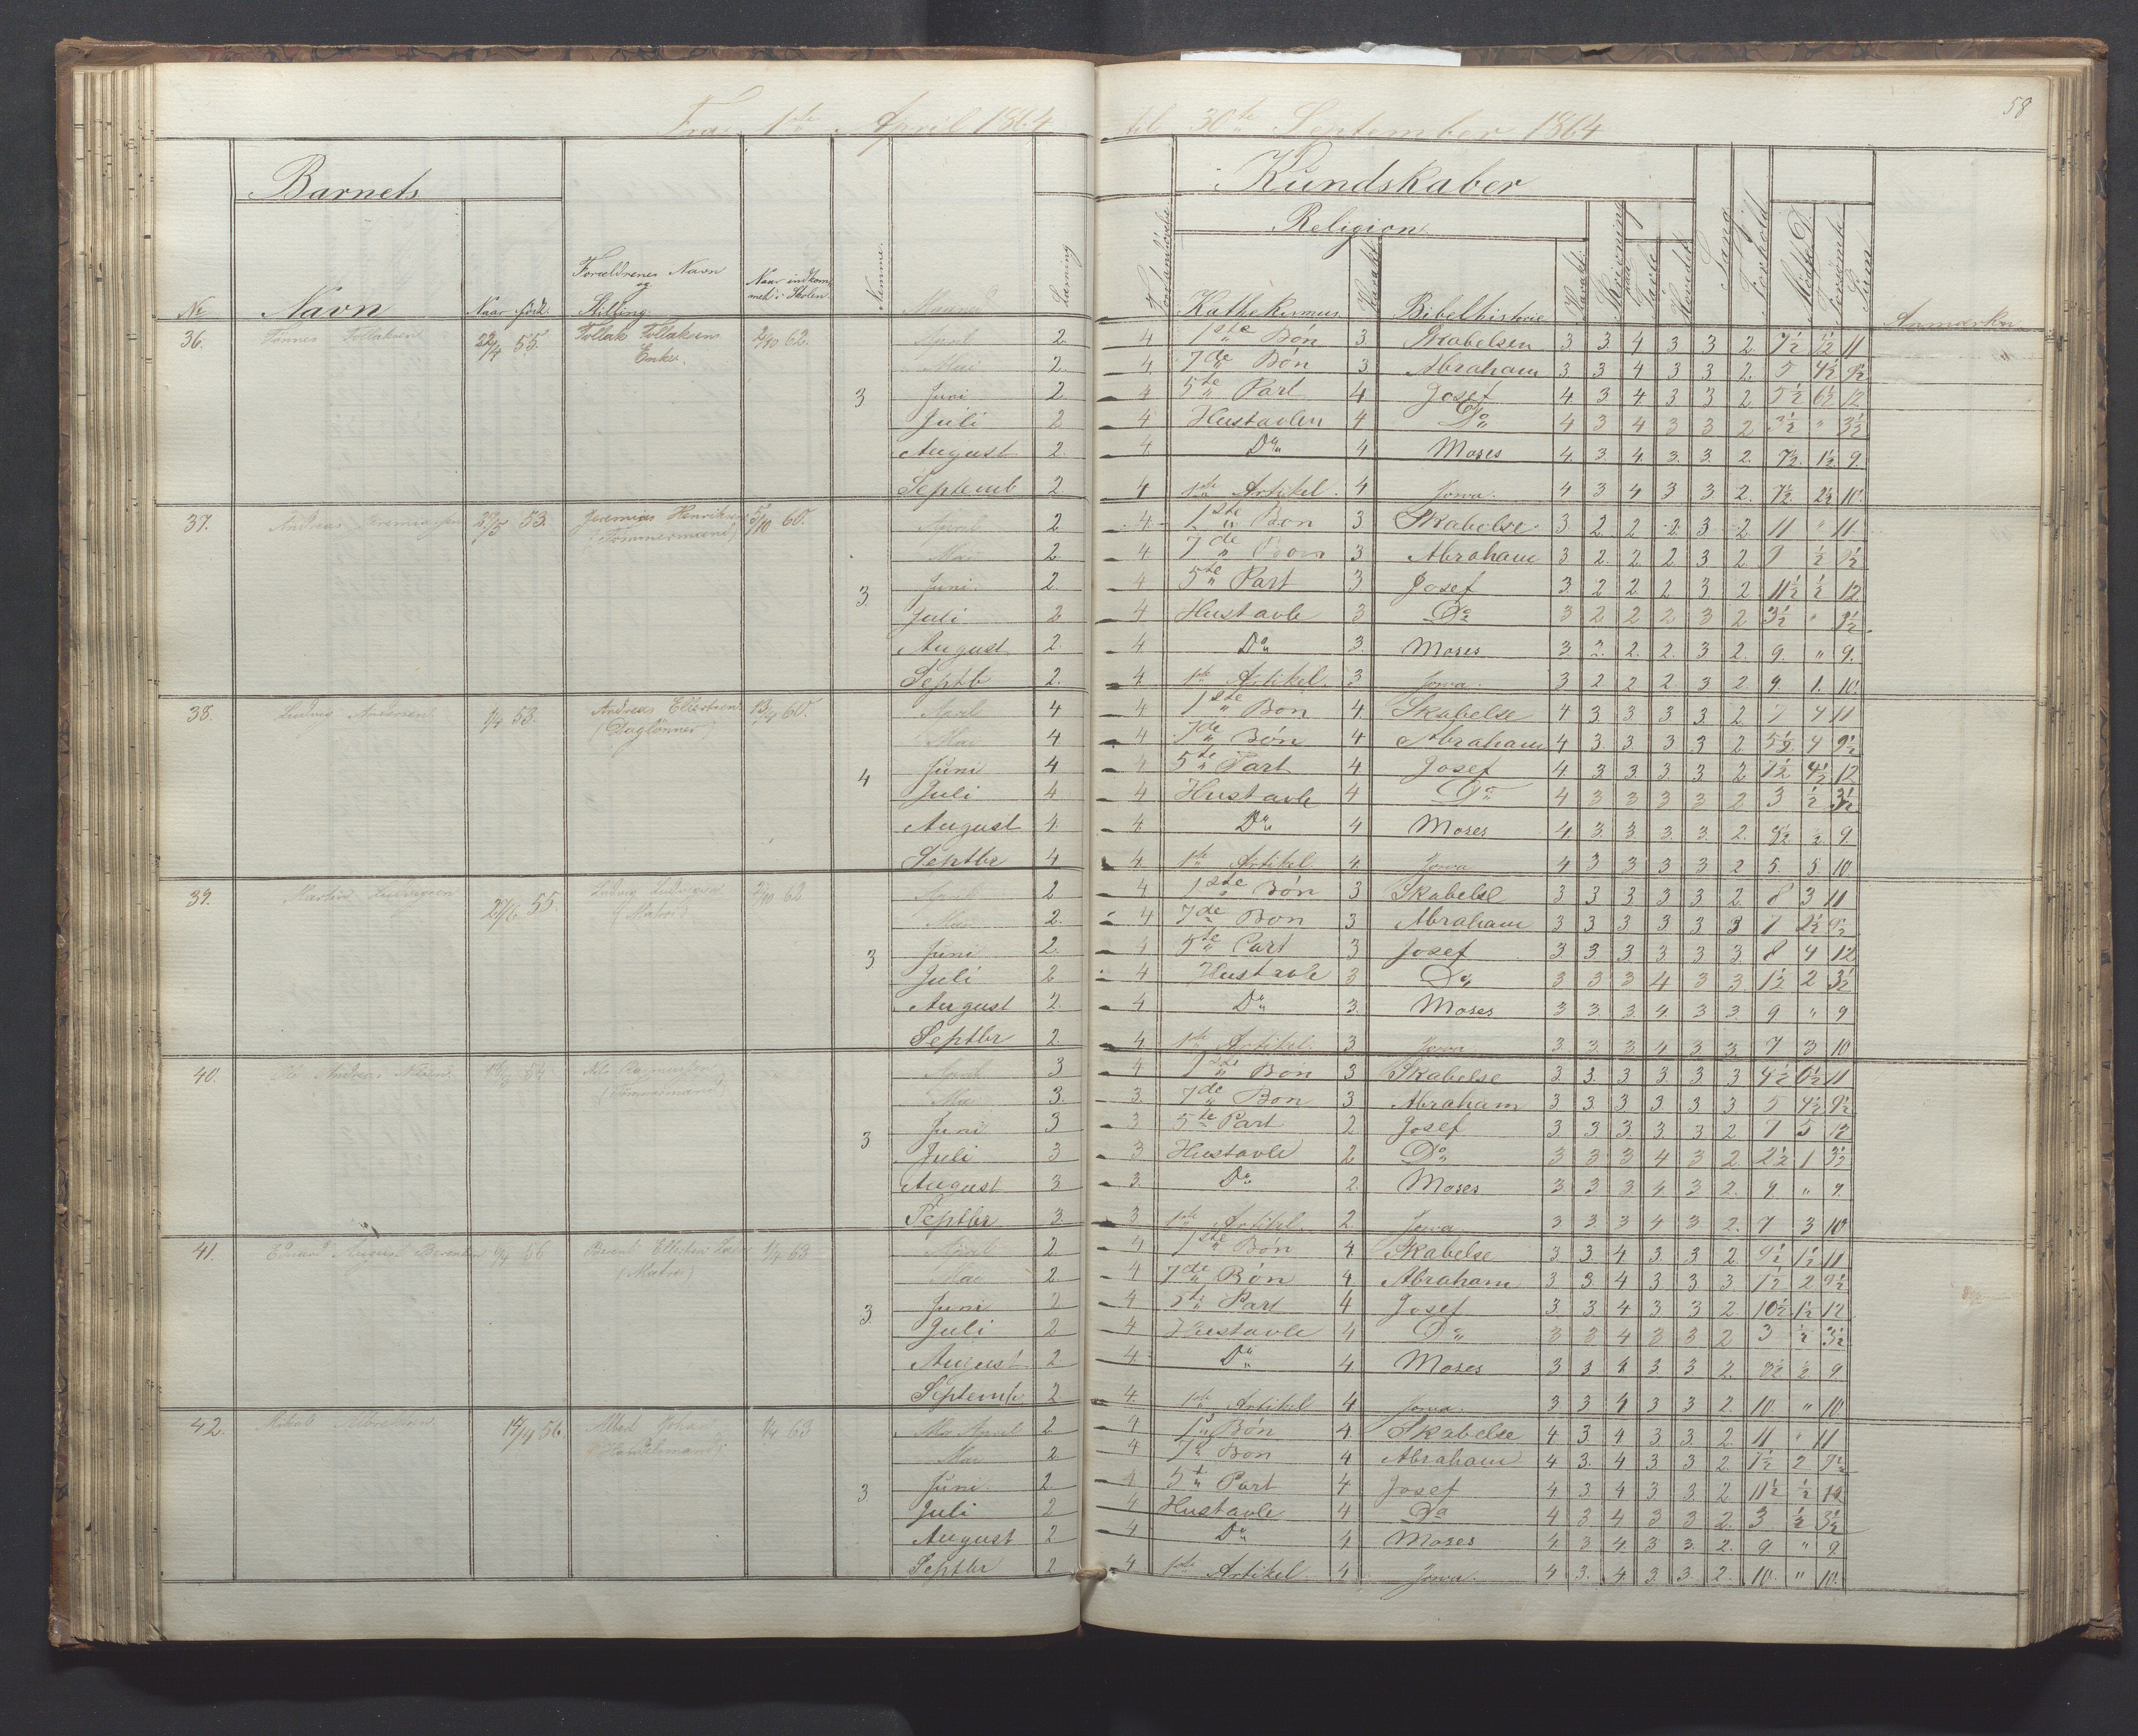 58
Fra 1ste April 1864 til 30te September 1864
Barnets
Kundskaber
Religion
No
Navn
Naar født
Forældrenes Navn og Stilling
Naar indkommet i Skolen
Nemme
Maaned
Læsning
Forstandsøvelse
Kathekismus
Karakt
Bibelhistorie
Karakt
Skrivning
Tavle
Hovedet
Sang
Forhold
Mødte D.
Forsømte
Sum
Anmærkn
36. Tønnes Tollaksen 22/4 55. Tollak Tollaksens Enke. 2/10 62. 3
April 2. 4 1ste Bøn 3 Skabelsen 3 3. 4 3 3 2. 7½ 3½ 11
Mai 2. 4. 7de Bøn 3 Abraham 3 3 4 3 3 2. 5 4½ 9½
Juni 2. 4 5te Part 4 Josef 4. 3 4 3 3 2 5½ 6½ 12
Juli 2 4 Hustavlen 4 Do 4 3 4 3 3 2 3½ " 3½
August 2. 4. Do 4 Moses 4. 3. 4. 3. 3. 2. 7½. 1½. 9.
Septemb 2 4 1ste Artikel. 4 4 3 4 3 3. 2. 7½ 2½ 10.
37. Andreas Jeremiassen 53. Jeremias Henriksen (Tømmermand) 5/10 60. 3.
April 2 4. 1ste Bøn 3. Skabelse 3. 2. 2 2. 3. 2 11 " 11
Mai 2 4 7de Bøn 3 Abraham 3 2. 2. 2 3 2 9 ½ 9½
Juni. 2. 4 5te Part 3 Josef 3. 2 2 2 3. 2 11½ ½ 12
Juli 2 4 Hustavle 3 Do 3 2 2 2 3 2 3½ " 3½
August 2. 4 Do 3. Moses 3. 2. 2. 2. 3 2. 9. " 9.
Septb 2. 4 1ste Artikel. 3 3 2 2 2 3 2. 9. 1. 10.
38. Ludvig Andersen 1/4 53. Andreas Ellestsen (Daglønner) 60. 4
April 4 4 1ste Bøn 4. Skabelse 4 3. 3 3 3. 2 7 4 11
Mai 4 4 7de Bøn 4 Abraham 4 3. 3. 3 3 2. 5½ 4 9½
Juni 4 4 5te Part 4 Josef 4. 3 3. 3. 3 2 7½ 4½ 12
Juli 4 4 Hustavle 4 Do 4 3 3 3 3 2 3 ½ 3½
August 4. 4 Do 4 Moses 4. 3. 3. 3. 3. 2. 8½ ½ 9
Septbr 4 4. 1ste Artikel. 4. 4 3 3 3 3 2 5. 5. 10
39. Martin Ludvigsen 27/6 55. Ludvig Ludvigsen (Matros) 2/10 62 3
April 2 4 1ste Bøn 3 Skabelse 3 3 3 3 3 2. 8 3 11
Mai 2. 4 7de Bøn 3 Abraham 3 3 3 3 3 3 7 2½ 9½
Juni 2. 4 5te Part 3 Josef 3. 3. 3 3 3 3. 8 4 12
Juli 2 4 Hustavle 3 Do 3 3 3 4 3 3. 1½ 2 3½
August 2. 4 Do 3. Moses 3 3. 3. 4 3 3. 9 " 9
Septbr 2. 4 1ste Artikel. 3 3. 3. 3 4 3 3. 7 3 10
40. Ole Andreas Nilsen (Tømmermand) 3
April 3 4 1ste Bøn 3 Skabelse 3. 3. 3 3. 3 3 4½ 6½ 11
Mai 3. 3. 7de Bøn 3 Abraham 3 3 3 3. 3 3. 5 4½ 9½
Juni 3 3 5te Part 2 Josef 3 3 3. 3 3 2 7 5 12
Juli 3 3 Hustavle 2 Do 3 3 3 4 3 2. 2½ 1 3½
August 3. 3. Do 2. Moses 3 3 3. 4 3 2. 9. " 9.
Septbr 3. 3 1ste Artikel. 2. 3 3. 3 4 3 2. 7 3 10
41. August Berentsen 56 Berent Ellertsen (Matros) 1/4 63 3.
April 2. 4 1ste Bøn 4 Skabelse 3. 3. 4 3. 3 2. 9½ 1½ 11
Mai 2 4 7de Bøn 4 Abraham 3 3. 4 3 3 3 7½ 2 9½
Juni 2 4 5te Part 4 Josef 3. 3 4 3 3 2. 10½ 1½ 12
Juli 2 4 Hustavle 4 Do 3 3 4 3 3 2 3 ½ 3½
August 2 4. Do 4 Moses 3 3 4 3. 3 2. 8½ ½ 9
Septemb 2. 4. 1ste Artikel 4 3 3 4 3 3 2. 10. " 10.
42. 14/4 56. Albert (Handelsmand) 1/4 63 3.
April 2 4 1ste Bøn 4 Skabelse 4 3. 4 3 3. 2. 11 " 11
Mai 2 4 7de Bøn 4 Abraham 4 3. 4 3 3 2. 7½ 2 9½
Juni. 2. 4 5te Part 4 Josef 4 3. 4 3 3. 2 11½ ½ 12
Juli 2 4 Hustavle 4 Do 4 3 4 3 3 2. 3 ½ 3½
August 2 4 Do 4 Moses 4 3 4. 3 3. 2. 9 " 9.
Septbr 2 4. 1ste Artikel. 4 4 3. 4 3. 3. 2. 10. " 10.